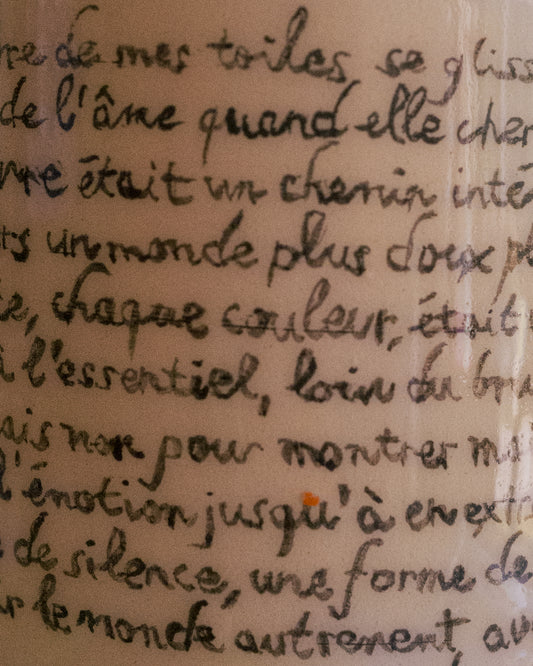 re de mes toiles se gliss
de l'âme quand elle cher
vre était un chemin inté
rs un monde plus doux pl
te, chaque couleur, était
à l'essentiel, loin du bru
ais non pour montrer mai
l'émotion jusqu'à en extr
de silence, une forme de
ir le monde autrement, av